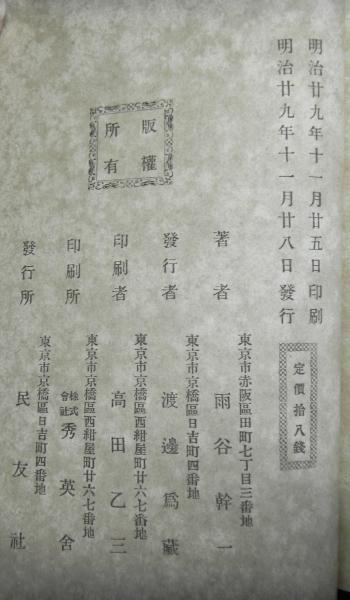 明治廿九年十一月廿五日印刷
明治廿九年十一月廿八日發行
定價拾八錢
版權所有
東京市赤阪區田町七丁目三番地
著者 雨谷幹一
東京市京橋區日吉町四番地
發行者 渡邊爲藏
東京市京橋區西紺屋町廿六七番地
印刷者 高田乙三
東京市京橋區西紺屋町廿六七番地
印刷所 株式會社秀英舍
東京市京橋區日吉町四番地
發行所 民友社